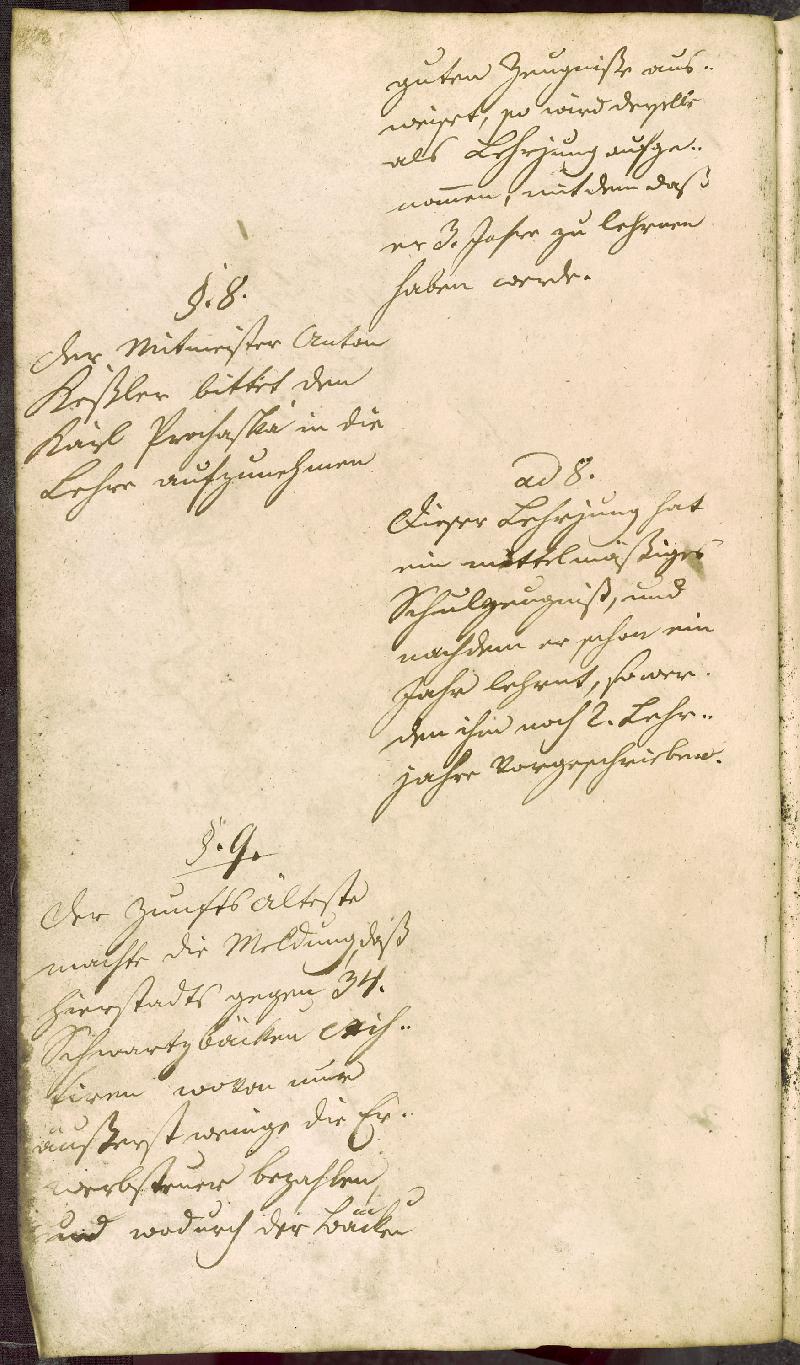 guten Zeugniße aus-
weiset, so wird derselbe
als Lehrjung aufge-
nommen, mit dem daß
er 3. Jahre zu lehrnen
haben werde.
§. 8.
Der Mitmeister Anton
Keßler bittet den
Karl Prochaska in die
Lehre aufzunehmen
ad 8.
Dieser Lehrjung hat
ein mittelmäßiges
Schulzeugniß, und
nachdem er schon ein
Jahr lehrnt, so wer-
den ihm noch 2. Lehr-
jahre vorgeschrieben.
§. 9.
Der Zunftsälteste
machte die Meldung, daß
hierstadts gegen 34.
Schwartzbäcken exis-
tiren wovon nur
äußerst wenige die Er-
werbsteuer bezahlen,
und wodurch der Bäcken